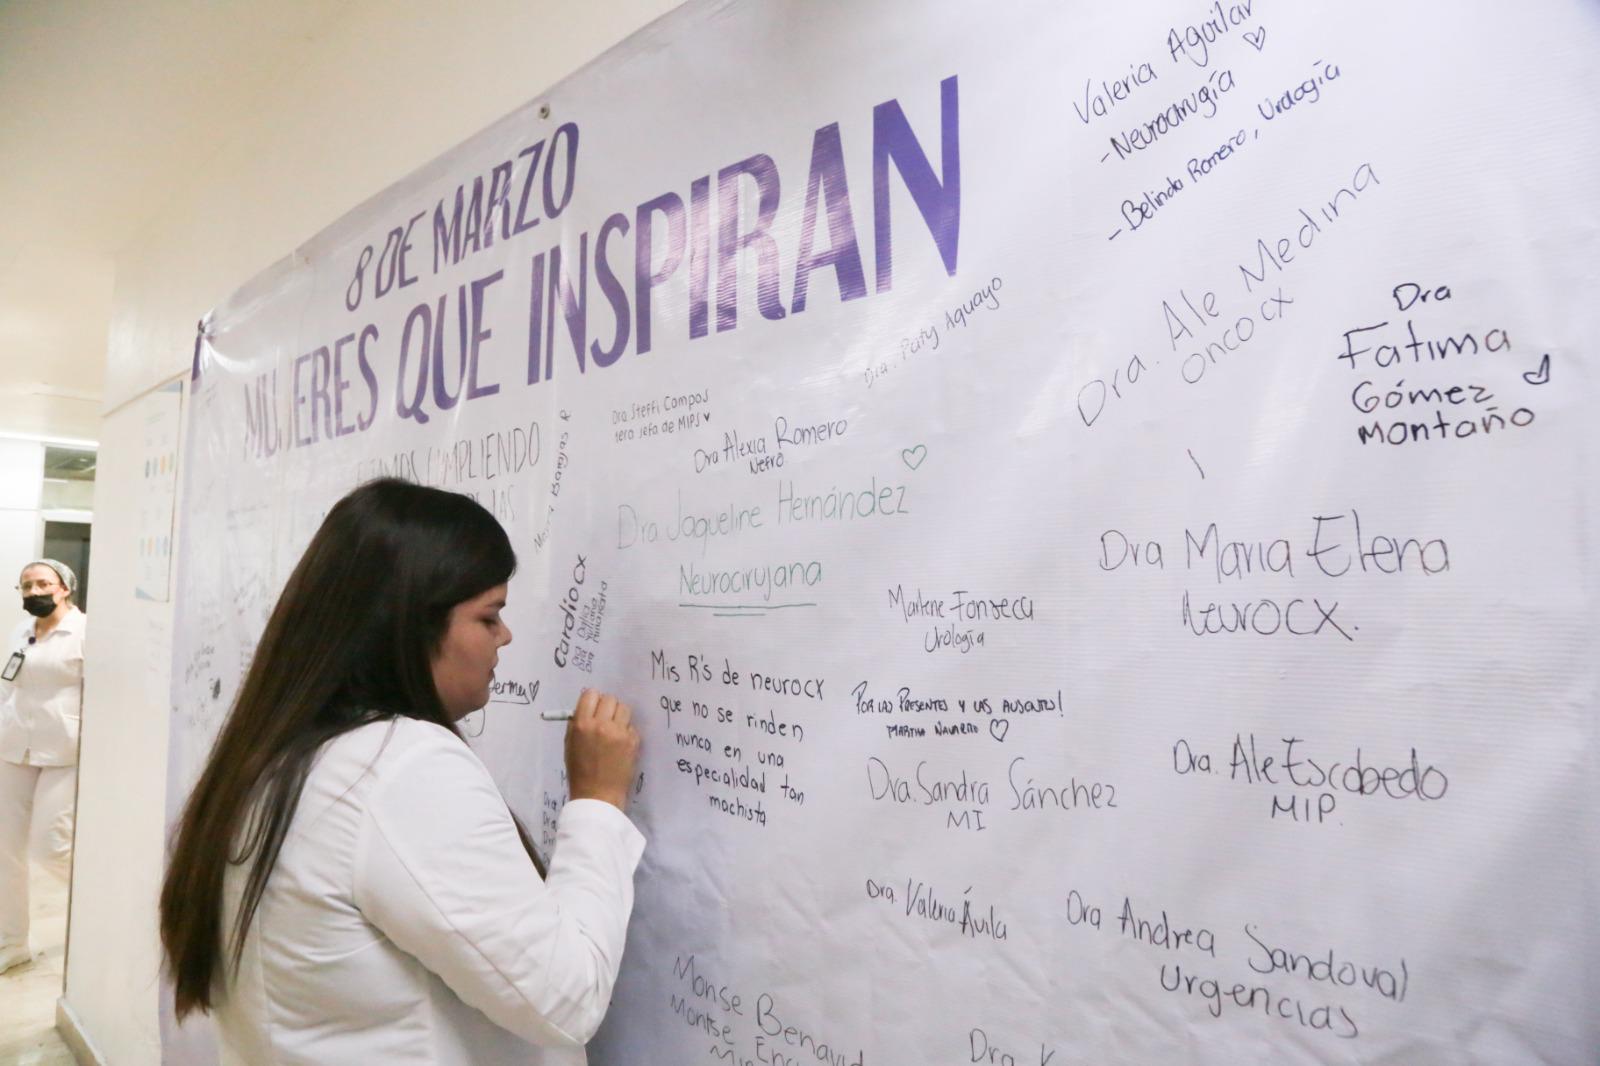 8 DE MARZO
MUJERES QUE INSPIRAN
ESTAMOS CUMPLIENDO
LAS
Valeria Aguilar
- Neurocirugía
- Belinda Romero, Urología
Dra. Ale Medina
onco cx
Dra
Fatima
Gómez
Montaño
Dra. Paty Aguayo
Dra Steffi Campos
1era Jefa de MIPS
Dra Alexia Romero
Nefro
Dra Jaqueline Hernández
Neurocirujana
CardioCX
Dra Dalia
Dra Juliana
Marlene Fonseca
Urología
Dra Maria Elena
NeuroCX.
Mis R's de neurocx
que no se rinden
nunca en una
especialidad tan
machista
Por las presentes y las ausentes!
Martha Navarro
Dra. Sandra Sánchez
MI
Dra. Ale Escobedo
MIP.
Dra. Valeria Ávila
Dra Andrea Sandoval
Urgencias
Monse Benavid
Montse
Dra